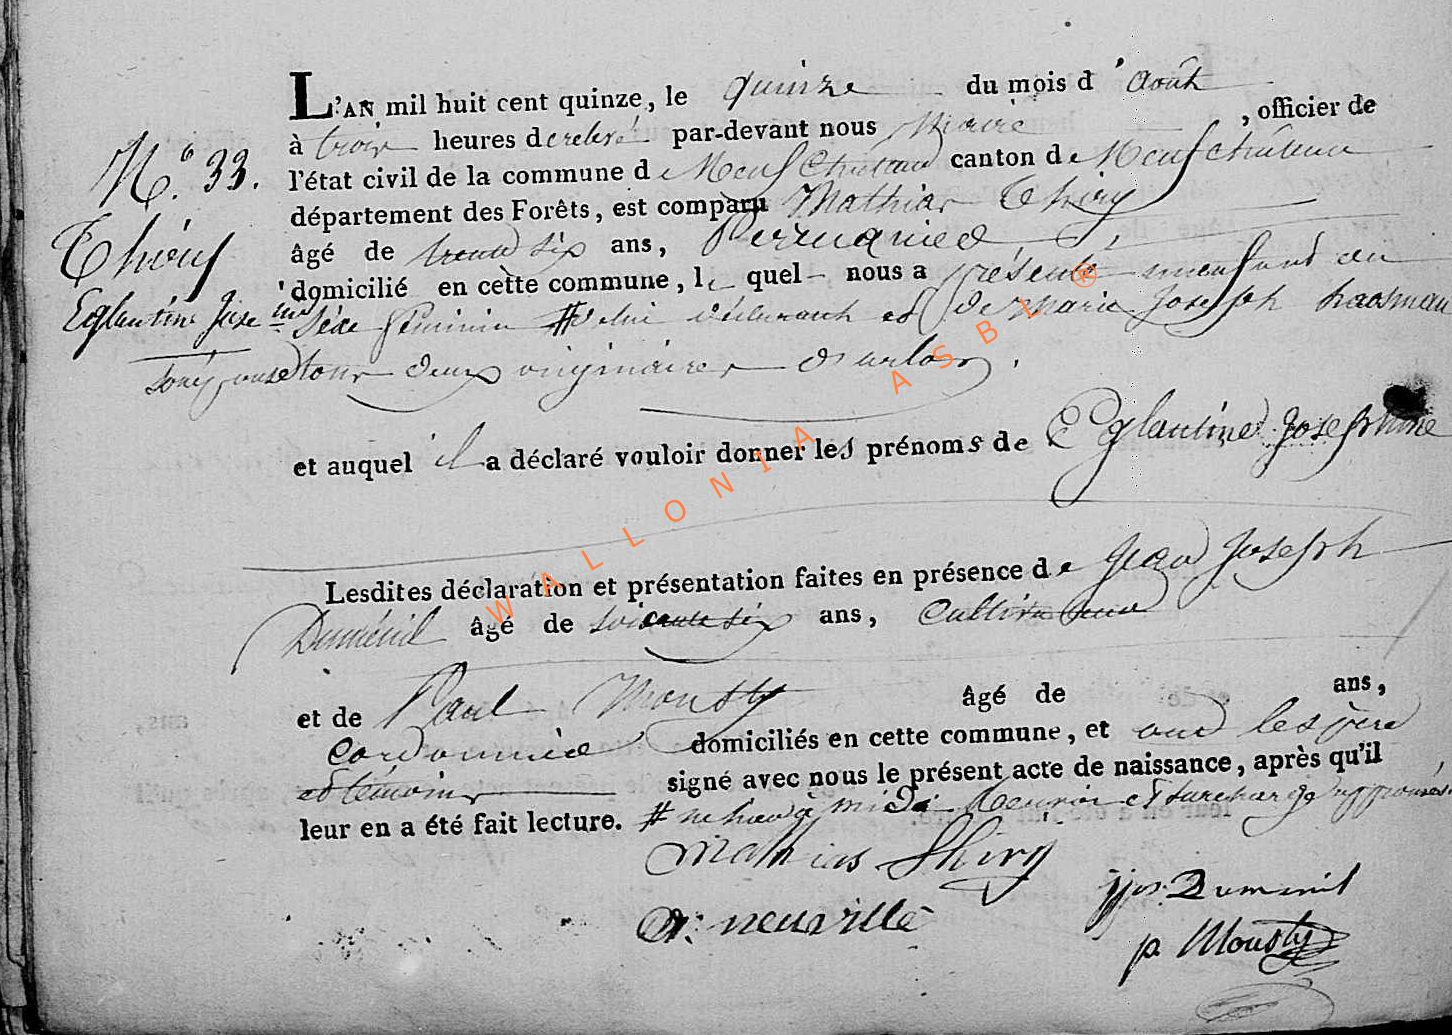 L'AN mil huit cent quinze, le quinze du mois d'août
à trois heures de relevé par-devant nous Maire, officier de
N.º 33. l'état civil de la commune de Neufchateau canton de Neufchateau
département des Forêts, est comparu Mathias Thiry
Thiéry âgé de trente six ans, Perruquier
domicilié en cette commune, le quel nous a présenté un enfant du
Eglantine Jose.ine Sexe féminin # de lui déclarant et de Marie Joseph haosman
son épouse tous deux originaires d'arlon.
et auquel il a déclaré vouloir donner les prénoms de Eglantine Josephine
Lesdites déclaration et présentation faites en présence de Jean Joseph
Duménil âgé de soixante six ans, Cultivateur
et de Paul Mousty âgé de ans,
Cordonnier domiciliés en cette commune, et ont les père
et témoins signé avec nous le présent acte de naissance, après qu'il
leur en a été fait lecture. # né hier à midi et surcharge approuvés
Mathias Thiry
jjos. Dumenil
A: neuville
p. Mousty
WALLONIA ASBL ®